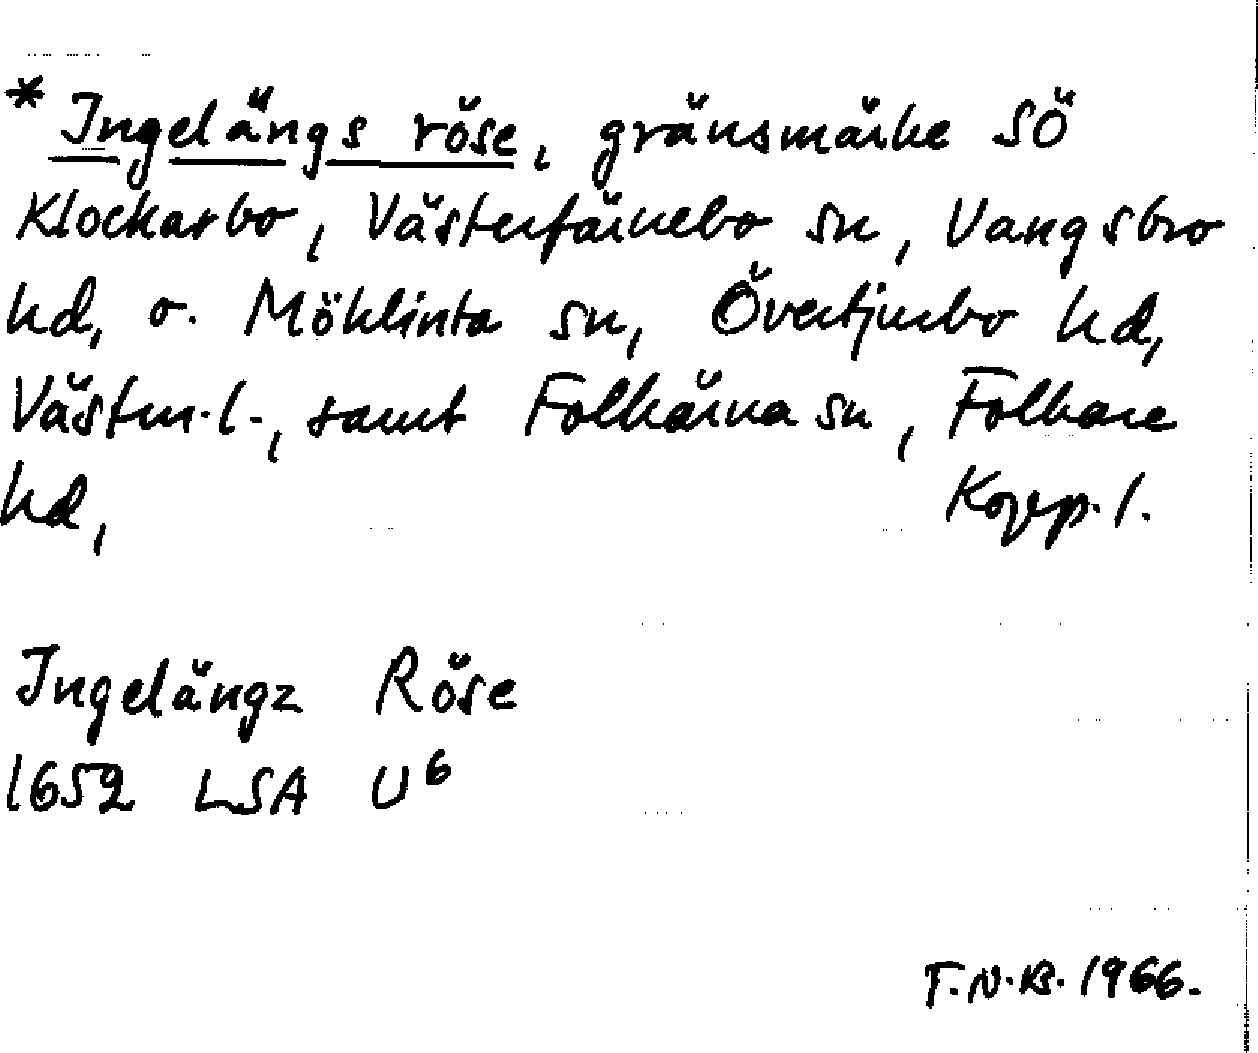 * Ingelängs röse, gränsmärke SÖ
Klockarbo, Västerfärnebo sn, Vangsbro
hd, o. Möklinta sn, Övertjurbo hd,
Västm. l., samt Folkärna sn, Folkare
hd, Kopp. l.
Ingelängz Röse
1652 LSA U6
T.N.B. 1966.